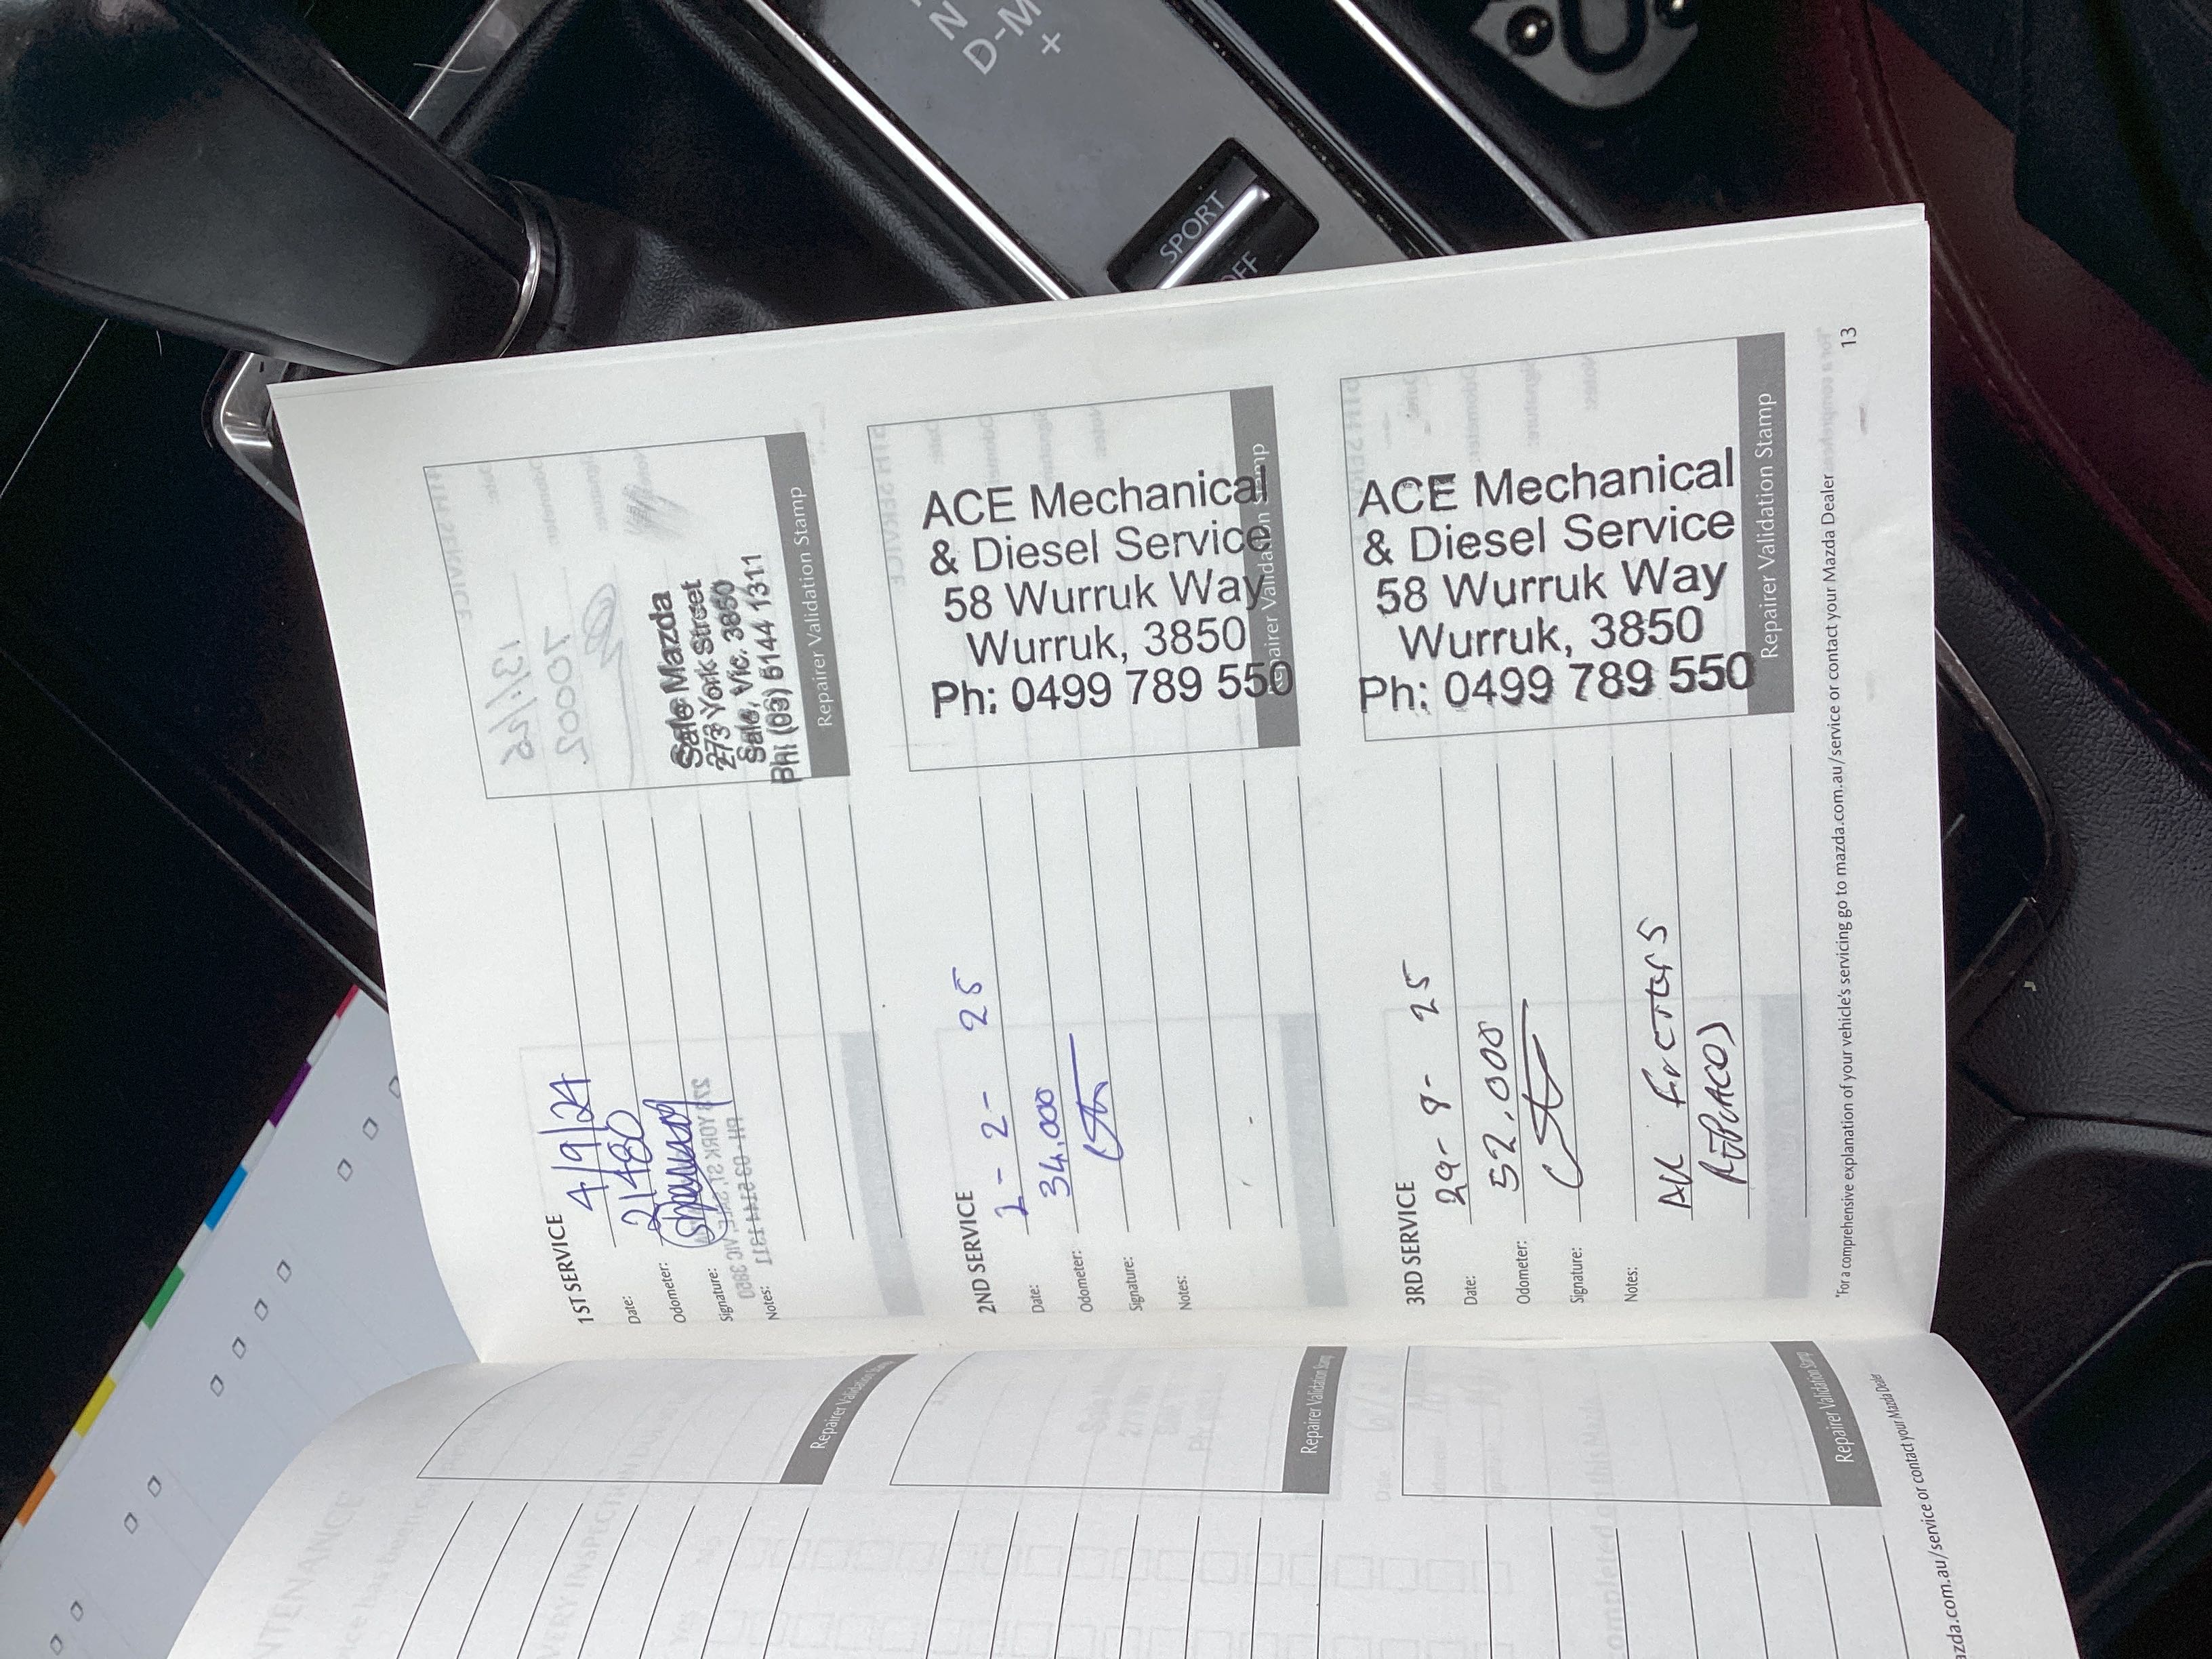 N
D-M
+
SPORT
OFF
1ST SERVICE
Date: 4/9/24
Odometer: 21480
Signature:
Notes:
Sale Mazda
273 York Street
Sale, Vic. 3850
Ph: (03) 5144 1311
Repairer Validation Stamp
2ND SERVICE
Date: 2 - 2 - 25
Odometer: 34,000
Signature:
Notes:
ACE Mechanical
& Diesel Service
58 Wurruk Way
Wurruk, 3850
Ph: 0499 789 550
Repairer Validation Stamp
3RD SERVICE
Date: 29 - 8 - 25
Odometer: 52,000
Signature:
Notes: All FILTERS
REPLACED
ACE Mechanical
& Diesel Service
58 Wurruk Way
Wurruk, 3850
Ph: 0499 789 550
Repairer Validation Stamp
*For a comprehensive explanation of your vehicle's servicing go to mazda.com.au/service or contact your Mazda Dealer
13
Repairer Validation Stamp
Repairer Validation Stamp
Repairer Validation Stamp
mazda.com.au/service or contact your Mazda Dealer